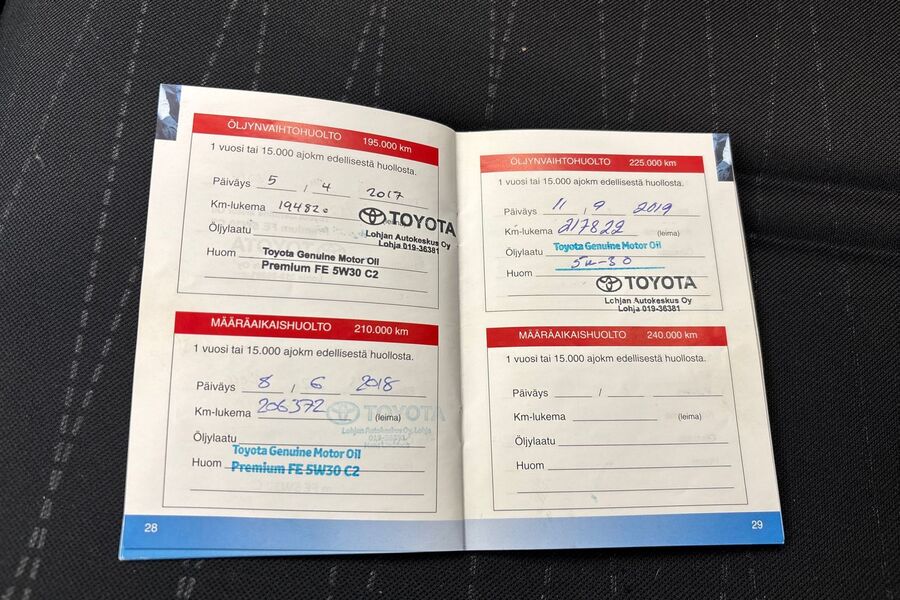 ÖLJYNVAIHTOHUOLTO 195.000 km
1 vuosi tai 15.000 ajokm edellisestä huollosta.
Päiväys 5 / 4 2017
Km-lukema 194820 (leima)
TOYOTA
Lohjan Autokeskus Oy
Lohja 019-36381
Öljylaatu
Huom Toyota Genuine Motor Oil
Premium FE 5W30 C2
MÄÄRÄAIKAISHUOLTO 210.000 km
1 vuosi tai 15.000 ajokm edellisestä huollosta.
Päiväys 8 / 6 2018
Km-lukema 206372 (leima)
TOYOTA
Lohjan Autokeskus Oy, Lohja
Öljylaatu
Toyota Genuine Motor Oil
Huom Premium FE 5W30 C2
28
ÖLJYNVAIHTOHUOLTO 225.000 km
1 vuosi tai 15.000 ajokm edellisestä huollosta.
Päiväys 11 / 9 2019
Km-lukema 217822 (leima)
Öljylaatu Toyota Genuine Motor Oil
5w-30
Huom
TOYOTA
Lohjan Autokeskus Oy
Lohja 019-36381
MÄÄRÄAIKAISHUOLTO 240.000 km
1 vuosi tai 15.000 ajokm edellisestä huollosta.
Päiväys /
Km-lukema (leima)
Öljylaatu
Huom
29